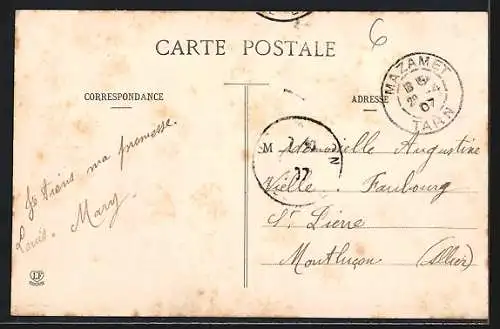 CARTE POSTALE
6
CORRESPONDANCE
ADRESSE
MAZAMET
29 -4
07
TARN
Je tiens ma promesse.
Louis. Mary.
M
07
Mademoiselle Augustine
Vielle. Faubourg
St Pierre
Montluçon (Allier)